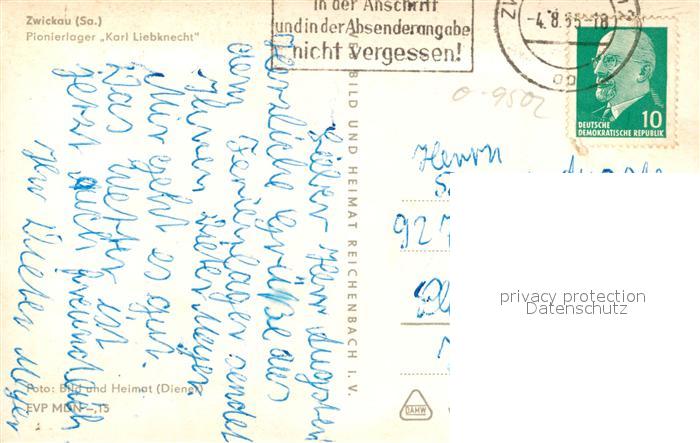 Zwickau (Sa.)
Pionierlager „Karl Liebknecht"
in der Anschrift
und in der Absenderangabe
nicht vergessen!
-4.8.65-18
10
DEUTSCHE
DEMOKRATISCHE REPUBLIK
0-9502
Lieber Herr
Herzliche Grüße aus
dem Ferienlager sendet
Ihnen Dieter Meyer
Mir geht es gut.
Das Wetter ist
jetzt auch freundlich
Ihr Dieter Meyer
BILD UND HEIMAT REICHENBACH I. V.
Herrn
92
privacy protection
Datenschutz
Foto: Bild und Heimat (Diener)
EVP MDN -,15
DAMW